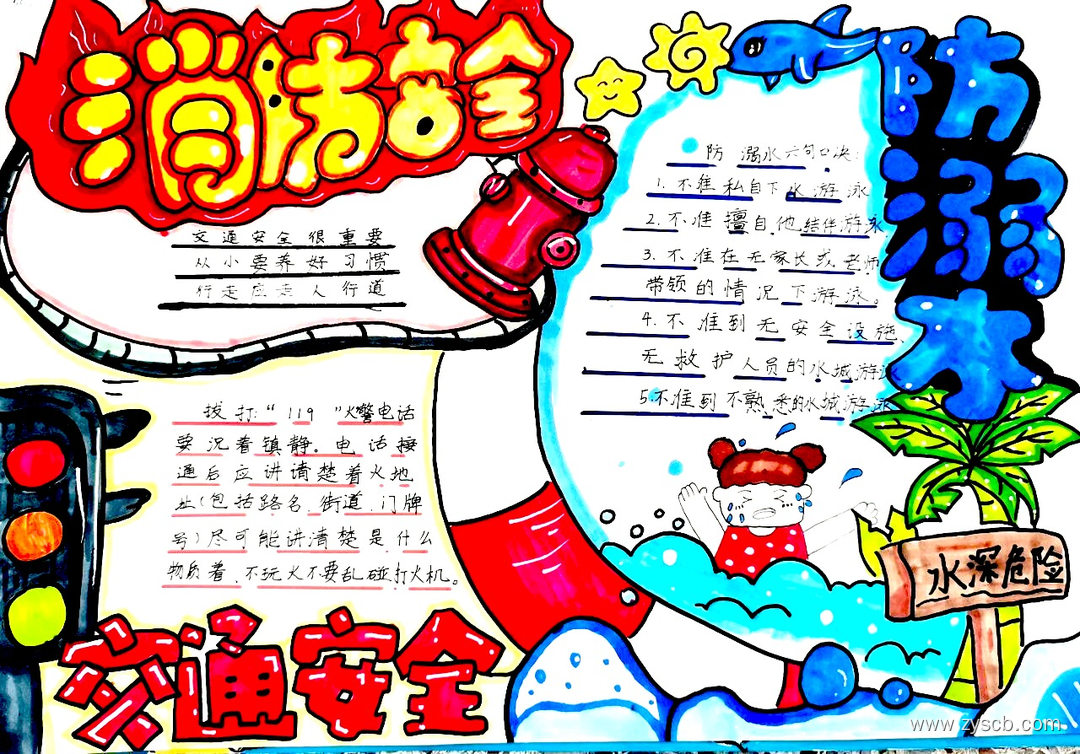 消防安全
交通安全很重要
从小要养好习惯
行走应走人行道
拨打:“119”火警电话
要沉着镇静.电话接
通后应讲请楚着火地
址(包括路名.街道.门牌
号)尽可能讲清楚是什么
物质着.不玩火不要乱碰打火机。
交通安全
防溺水
防溺水六句口决:
1.不准私自下水游泳
2.不准擅自他结伴游泳.
3.不准在无家长或老师
带领的情况下游泳。
4.不准到无安全设施.
无救护人员的水城游泳
5.不准到不熟悉的水城游泳
水深危险
www.zyscb.com